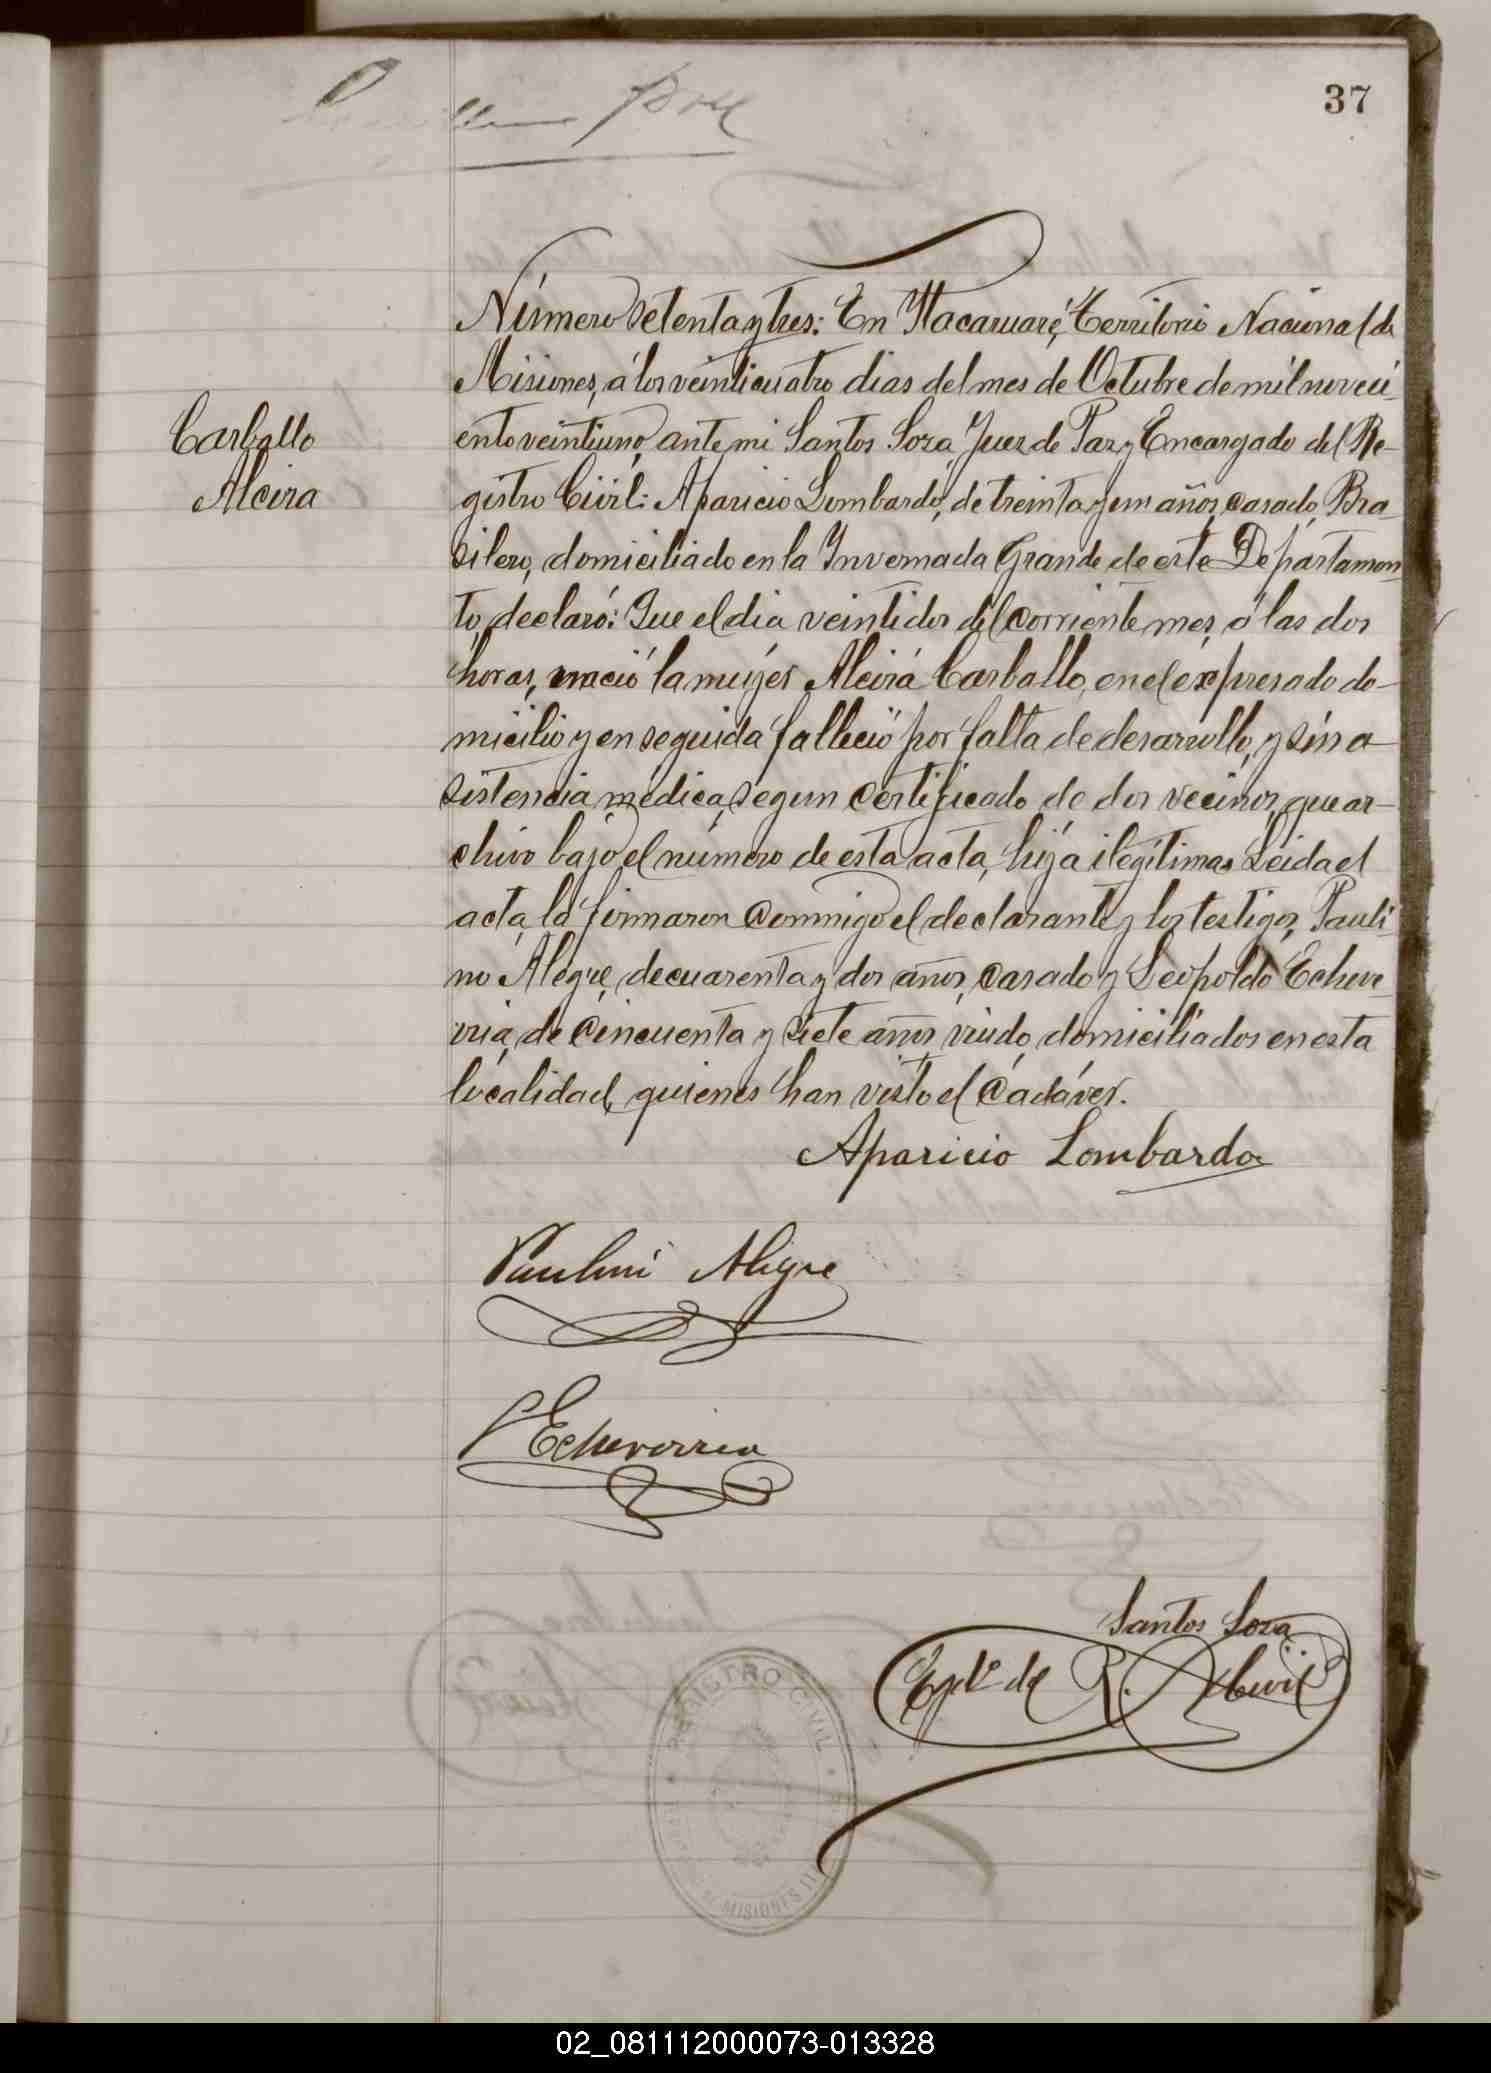 37
Número setenta y tres: En Itacaruaré, Territorio Nacional de
Misiones, á los veinticuatro dias del mes de Octubre de mil noveci-
Carballo
Alcira
ento veintiuno, ante mi Santos Soza, Juez de Paz y Encargado del Re-
gistro Civil: Aparicio Lombardo, de treinta y un años, casado, Bra-
silero, domiciliado en la Invernada Grande de este Departamen-
to, declaró: Que el dia veintidos del corriente mes, á las dos
horas, nació la mujer Alcira Carballo, en el expresado do-
micilio y en seguida falleció por falta de desarrollo, y sin a-
sistencia médica, segun certificado de dos vecinos, que ar-
chivo bajo el número de esta acta, hija ilegítima. Leida el
acta, la firmaron conmigo el declarante y los testigos, Pauli-
no Alegre, de cuarenta y dos años, casado y Leopoldo Echeve-
rria, de cincuenta y siete años, viudo, domiciliados en esta
localidad, quienes han visto el cadáver.
Aparicio Lombardo
Paulini Alegre
L Echeverria
Santos Soza
Egdo de R. Civil
REGISTRO CIVIL
MISIONES
02_081112000073-013328